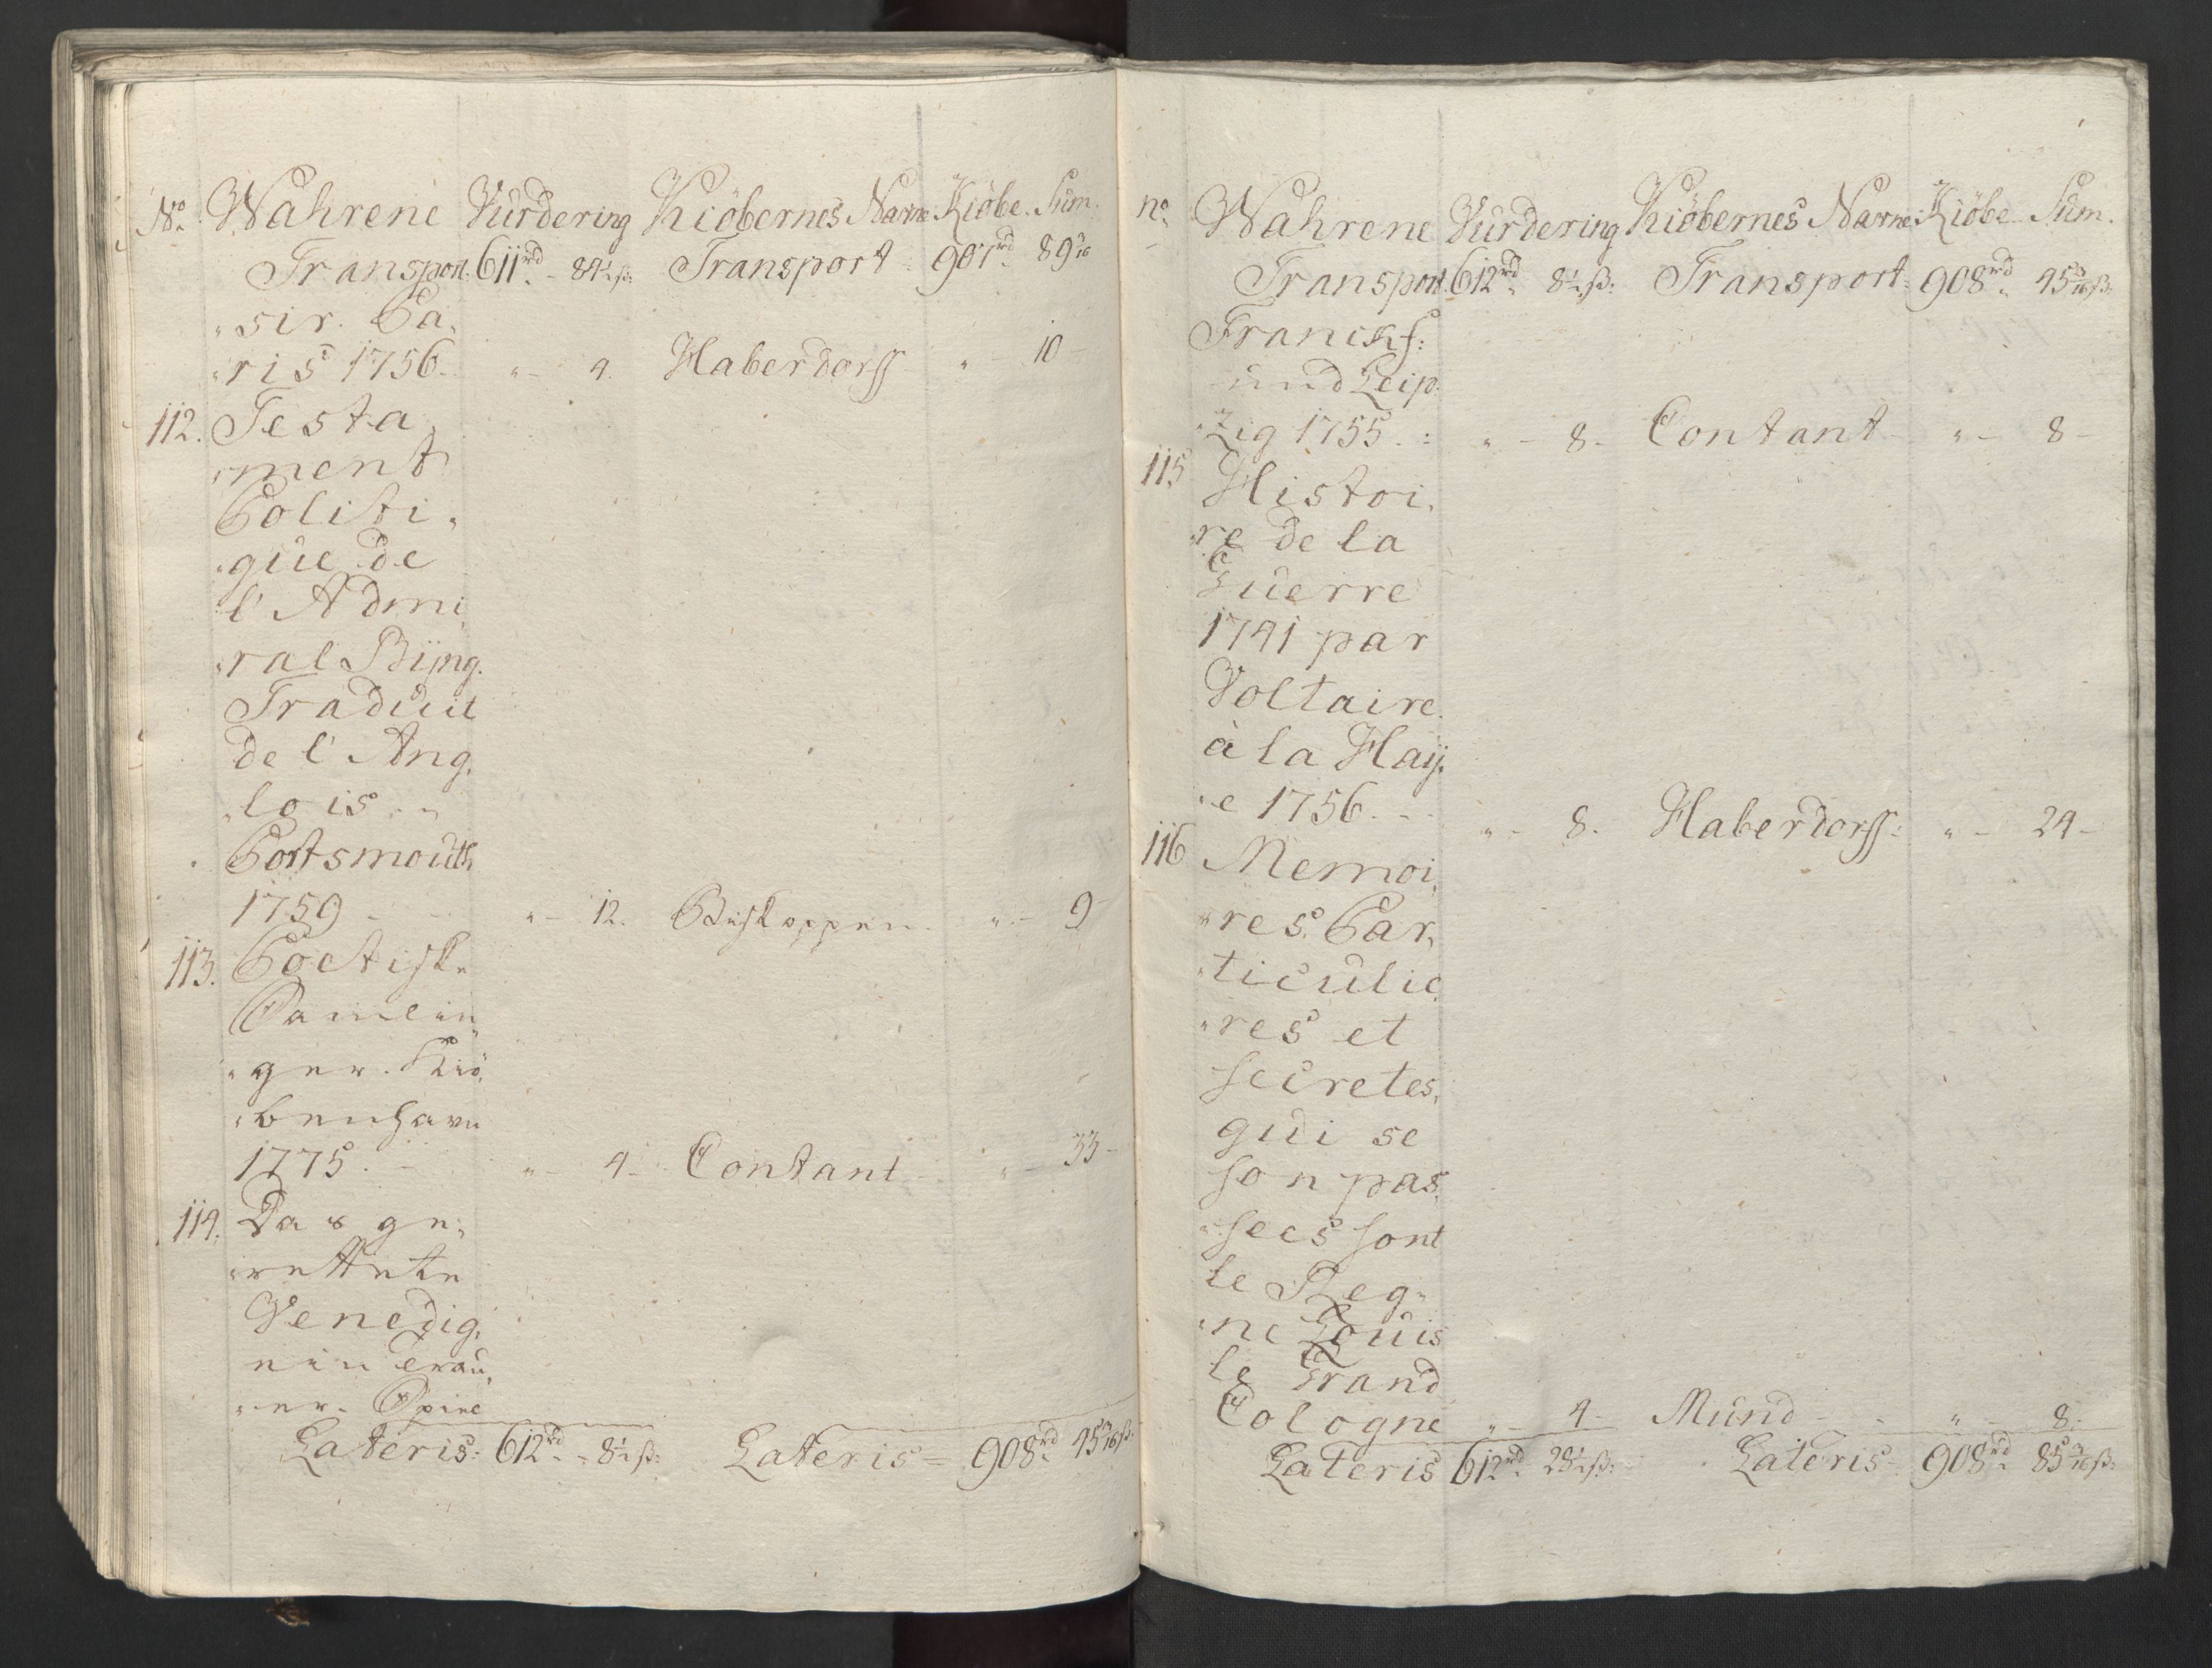 No. Wahrene Vurdering Kiöbernes Navne Kiöbe Sum.
Transport. 611rd - 84½ß: Transport - 907rd 89 3/16
"sir. Pa,
"ris 1756. " - 4. Haberdorff " - 10 -
112. Testa,
"ment
Politi,
"que de
l'Admi,
"ral Bÿng.
Traduit
de l'Ang,
"lois. "
Portsmouth,
1759 - " - 12. Biskoppen. " - 9 -
113. Poetiske
Samlin,
"ger. Kiö,
"benhavn
1775. - " - 4 - Contant " - 33 -
114. Das ge,
"rettete
Venedig,
ein Trau,
"er. Spiel
Lateris: 612rd - 8½ß: Lateris = 908rd 45 3/16ß:
no. Wahrene Vurdering Kiöbernes Navne: Kiöbe Sum.
Transport. 612rd 8½ß: Transport: 908rd 45 3/16ß:
Franckf:
und Leip,
"zig 1755. : " - 8 - Contant - " - 8 -
115 Histoi,
"re de la
Guerre
1741 par
Voltaire.
à la Haÿ,
"e 1756. - - " - 8. Haberdorff: " - 24 -
116 Memoi,
"res Par,
"ticulie,
"res et
secretes,
qui se
son pas,
"sees sont
le Reg,
"ne Louis
le Grand
Cologne " - 4 - Mund - - " - 8 -
Lateris 612rd 28½ß: Lateris - 908rd 85 3/16ß: